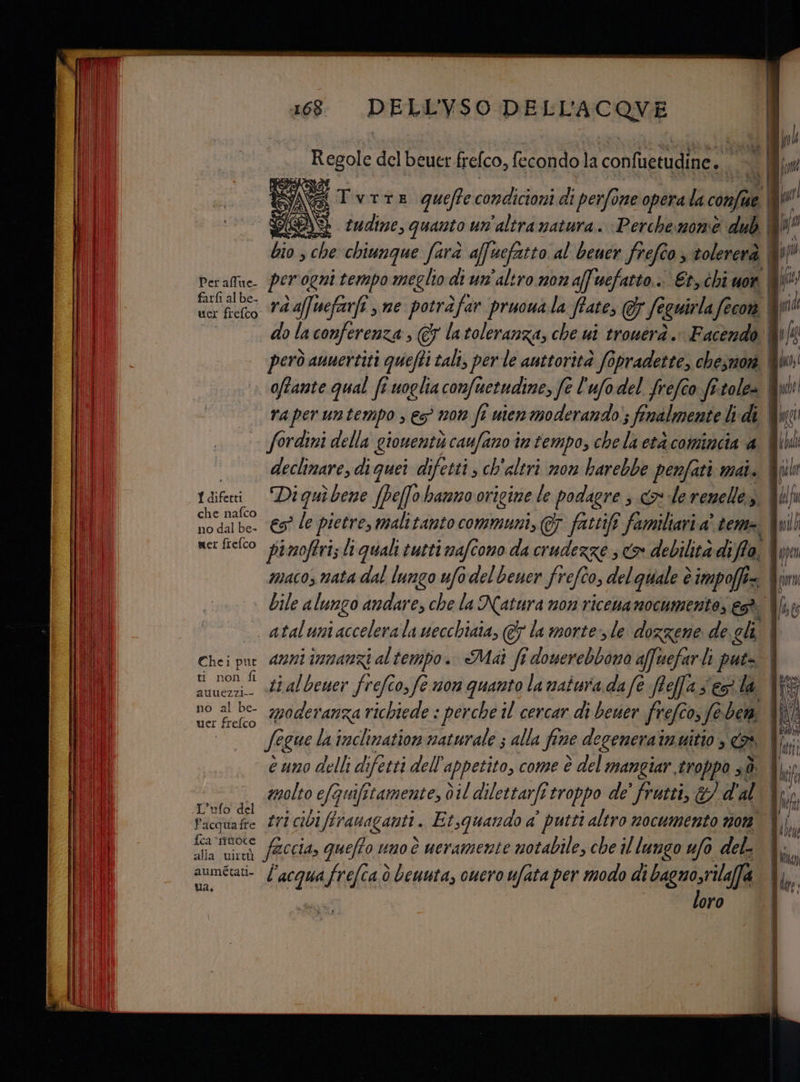 168 DELL'VSO DELL'ACQVE
Regole del beuer freſco, ſecondo la conſuetudine.
TVTTE queſte condicioni di perſone opera la conſue
tudine, quanto un'altra natura. Perche non è dub
bio, che chiunque ſarà aſſuefatto al beuer freſco, tolererà
per ogni tempo meglio di un'altro non aſſuefatto. Et, chi uor
rà aſſuefarſi, ne potrà far pruoua la ſtate, & ſeguirla ſecon
do la conferenza, & la toleranza, che ui trouerà. Facendo
però auuertiti queſti tali, per le auttorità ſopradette, che, non
oſtante qual ſi uoglia conſuetudine, ſe l'uſo del freſco ſi tole-
ra per un tempo, & non ſi uien moderando; finalmente li di
ſordini della giouentù cauſano in tempo, che la età comincia a
declinare, di quei difetti, ch'altri non harebbe penſati mai.
Di quì bene ſpeſſo hanno origine le podagre, & le renelle,
& le pietre, mali tanto communi, & fattiſi familiari a' tem-
pi noſtri; li quali tutti naſcono da crudezze, & debilità di ſto
maco, nata dal lungo uſo del beuer freſco, del quale è impoſſi-
bile a lungo andare, che la Natura non riceua nocumento, &
a tal uni accelera la uecchiaia, & la morte, le dozzene de gli
anni innanzi al tempo. Mai ſi douerebbono aſſuefar li put-
ti al beuer freſco, ſe non quanto la natura da ſe ſteſſa, & la
moderanza richiede: perche il cercar di beuer freſco, ſe ben
ſegue la inclination naturale; alla fine degenera in uitio, &
è uno delli difetti dell'appetito, come è del mangiar troppo, ò
molto eſquiſitamente, ò il dilettarſi troppo de' frutti, & d'al
tri cibi ſtrauaganti. Et, quando a' putti altro nocumento non
faccia, queſto uno è ueramente notabile, che il lungo uſo del-
l'acqua freſca ò beuuta, ouero uſata per modo di bagno, rilaſſa
loro
Per aſſue-
farſi al be-
uer freſco
I difetti
che naſco
no dal be-
uer freſco
Che i put
ti non ſi
auuezzi--
no al be-
uer freſco
L'uſo del
l'acqua fre
ſca nuoce
alla uirtù
aumētati-
ua.